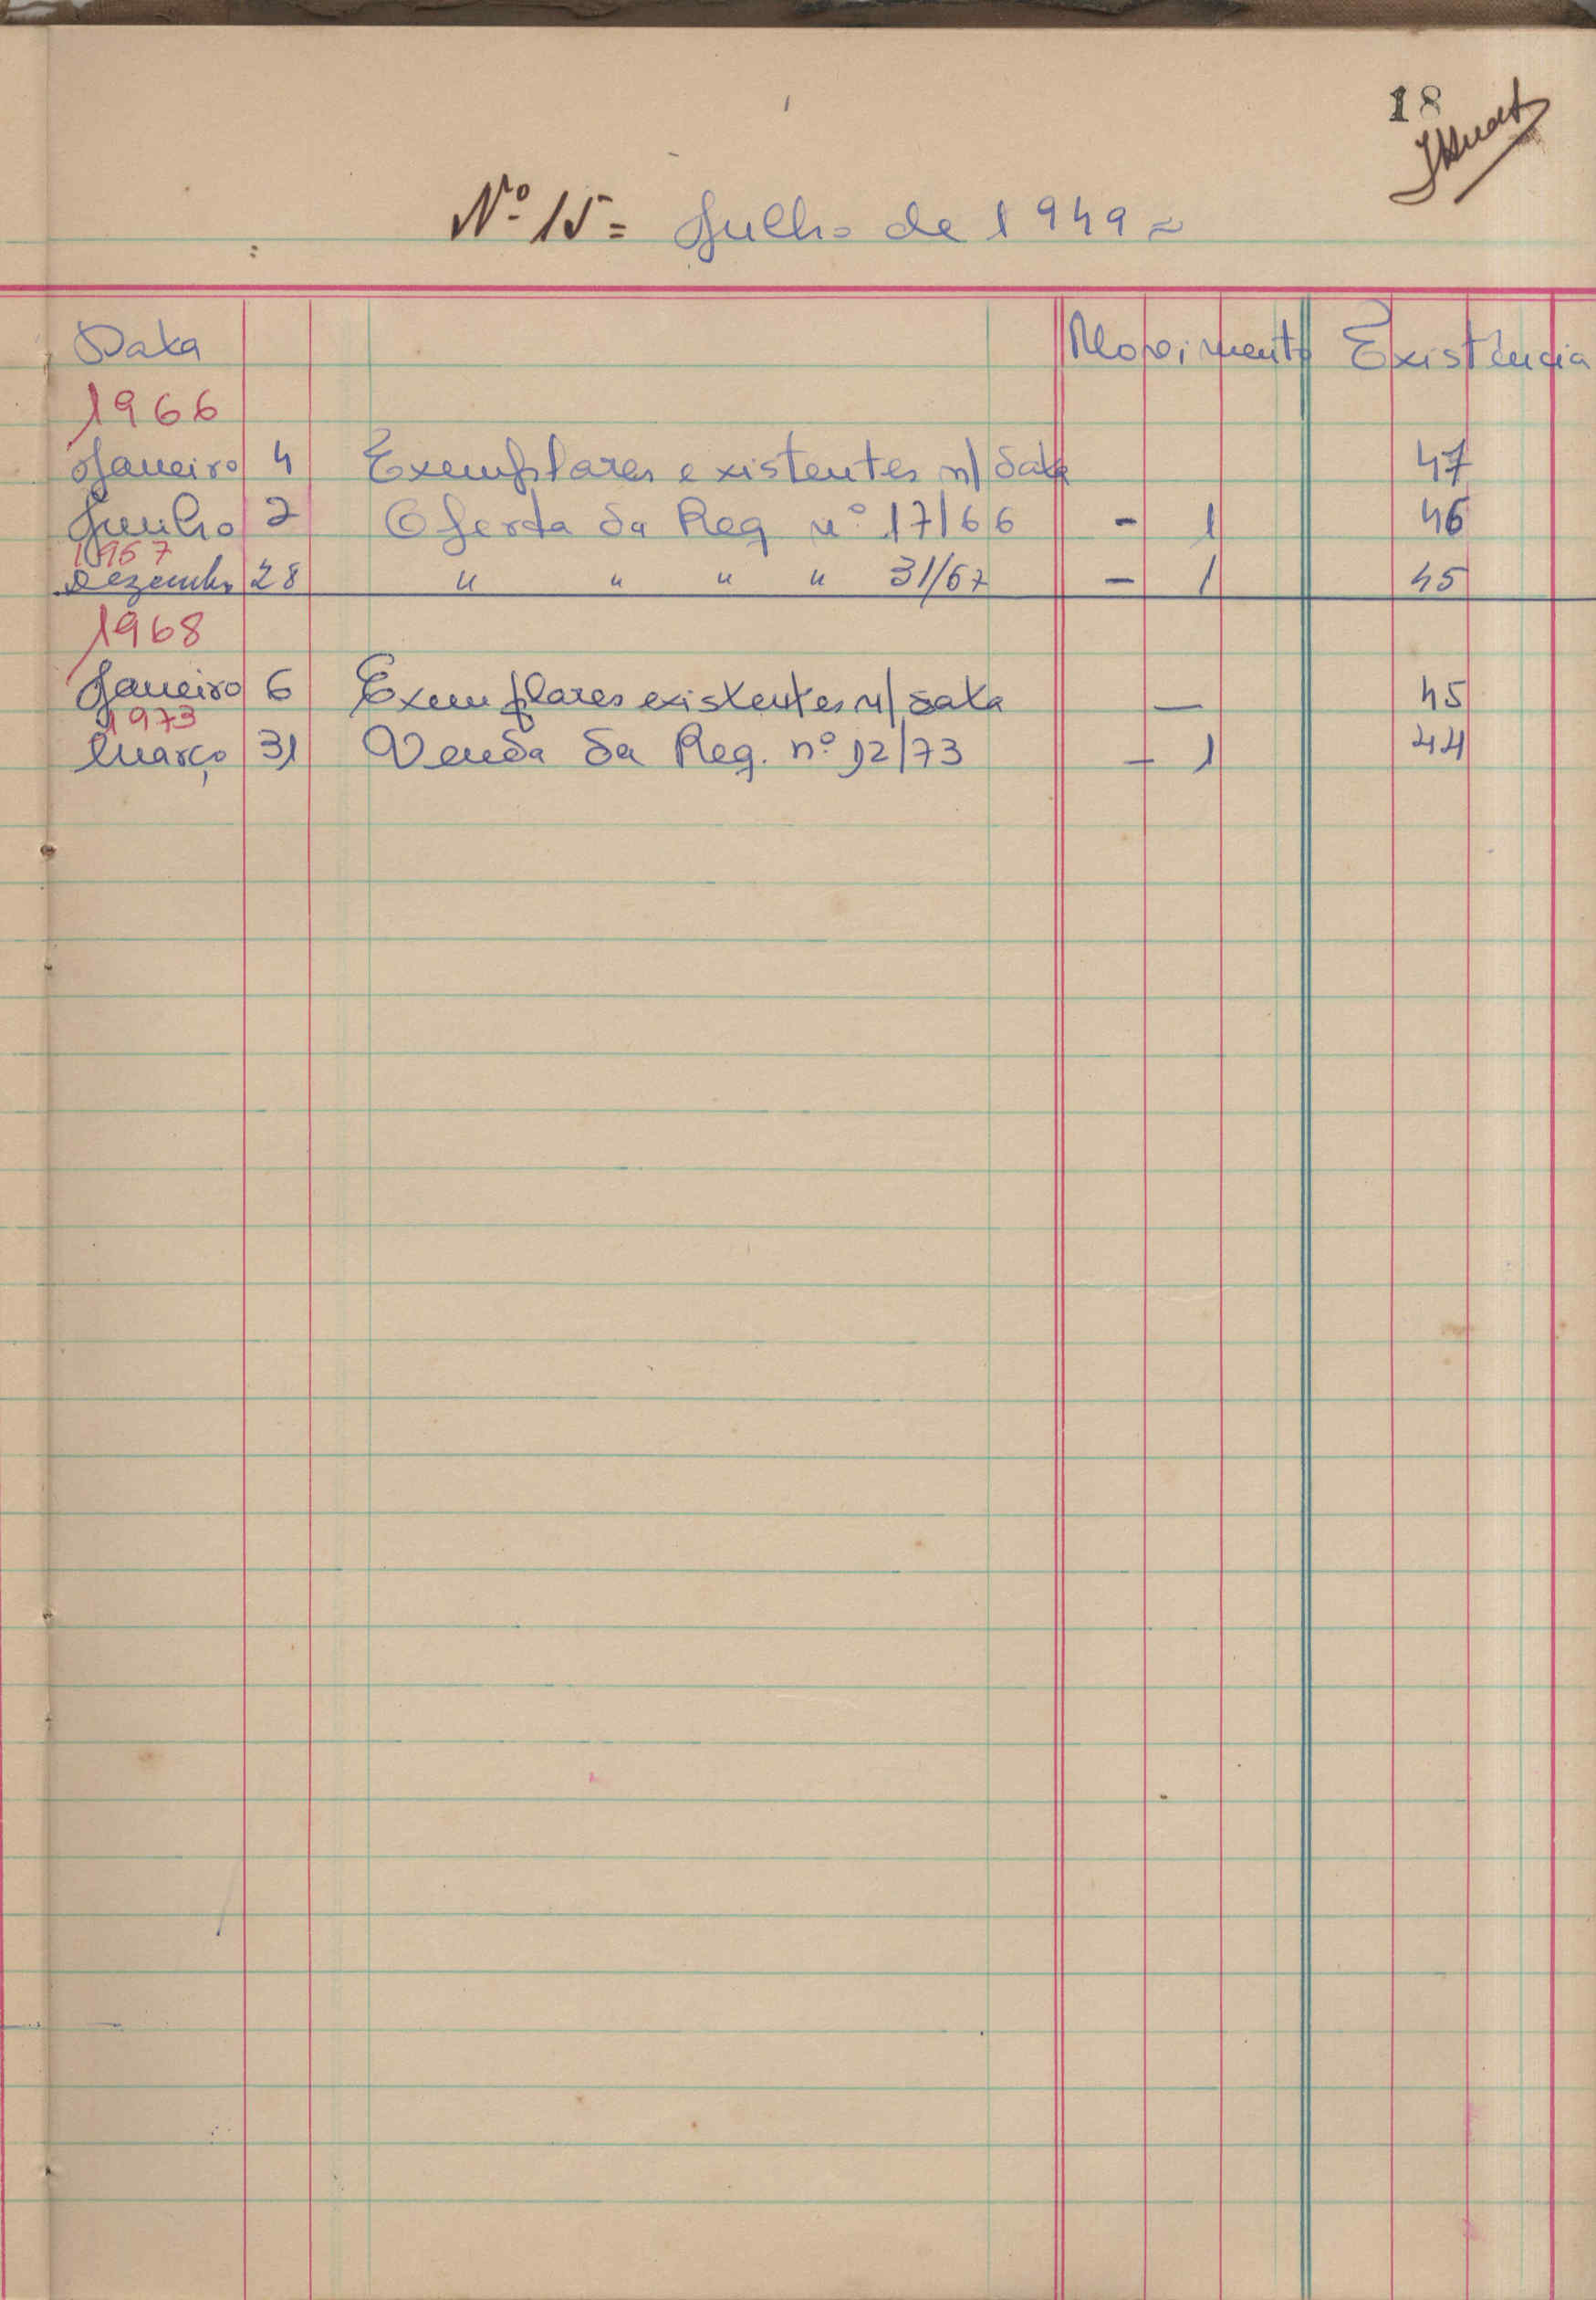 18
Nº 15 = Julho de 1949 =
Data Movimento Existência
1966
Janeiro 4 Exemplares existentes n/ data 47
Junho 2 Oferta da Req nº 17/66 - 1 46
1967
Dezembro 28 " " " " 31/67 - 1 45
1968
Janeiro 6 Exemplares existentes n/ data — 45
1973
Março 31 Venda da Req. nº 12/73 - 1 44